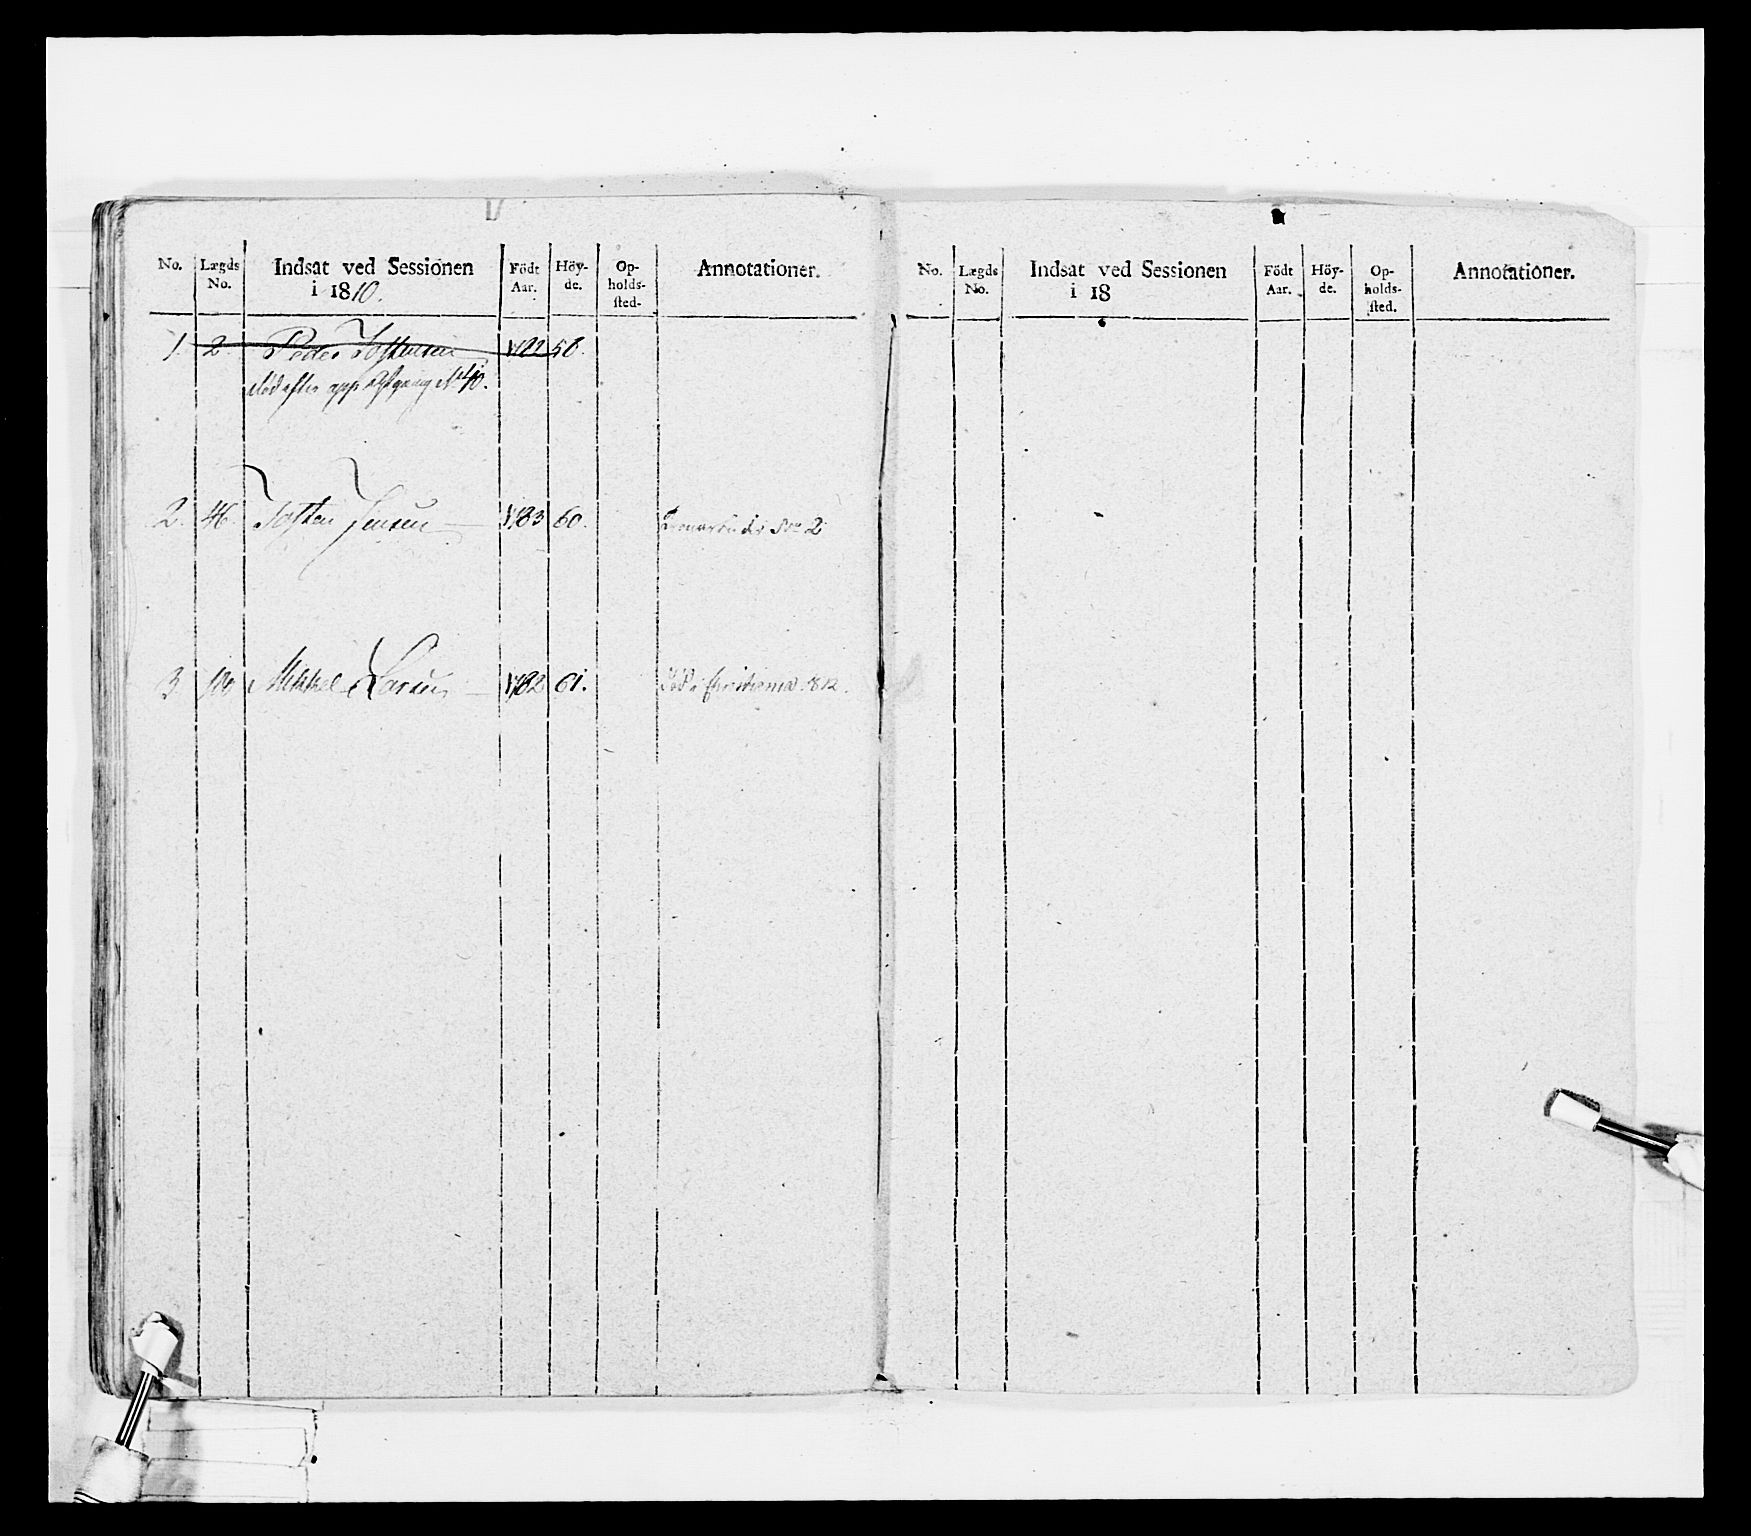 No. Lægds No. Indsat ved Sessionen i 1810. Födt Aar. Höy-de. Op-holds-sted. Annotationer.
1. 2. Peder 1782 58.
død efter No 40.
2. 46. Jensen 1783 60. No 2
3. Mikkel Larsen 1782 61. Død i Christiania 1812.
No. Lægds No. Indsat ved Sessionen i 18 Födt Aar. Höy-de. Op-holds-sted. Annotationer.